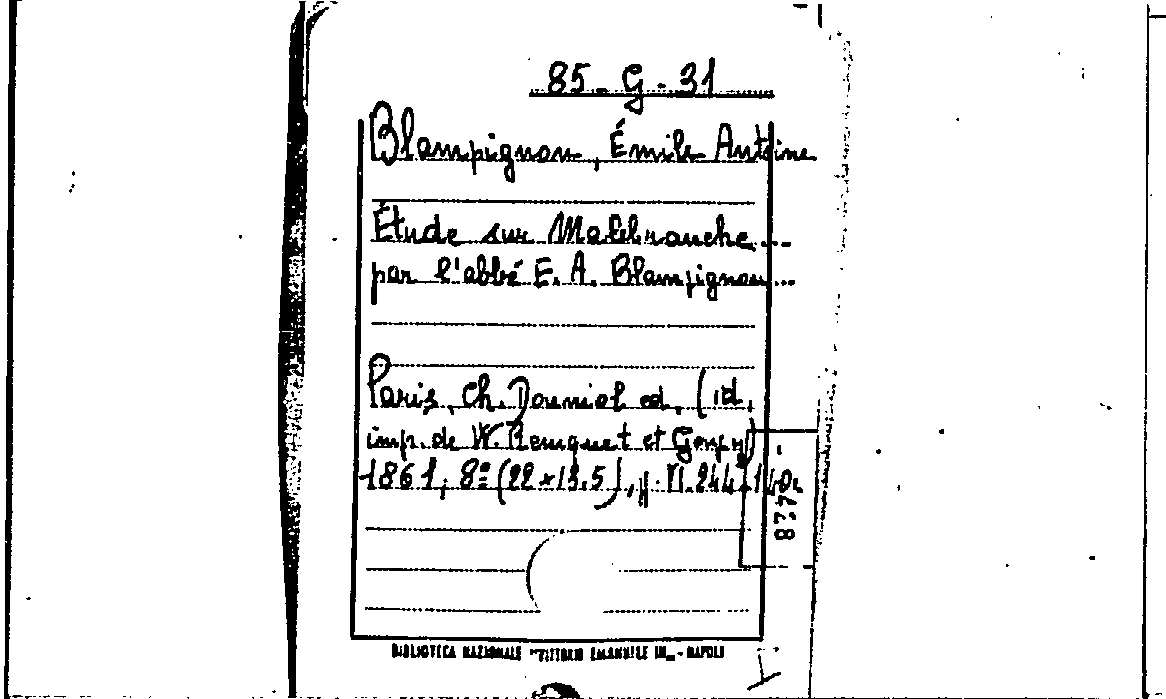 85-G-31
Blampignon, Émile Antoine
Étude sur Malebranche...
par l'abbé E. A. Blampignon...
Paris, Ch. Douniol ed. (id.
imp. de W. Remquet et Goupy)
1861, 8º (22 x 13.5), pp. VI. 244. 140.
8772
BIBLIOTECA NAZIONALE "VITTORIO EMANUELE III" - NAPOLI